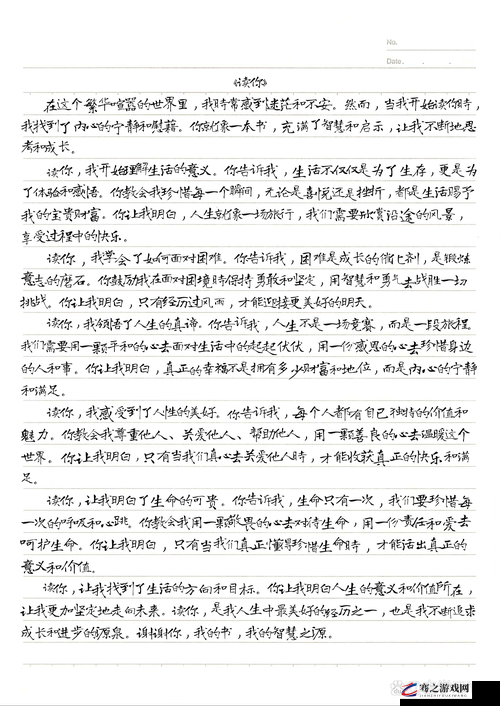 No.
Date.
《读你》
在这个繁华喧嚣的世界里，我时常感到迷茫和不安。然而，当我开始读你时，
我找到了内心的宁静和慰藉。你就像一本书，充满了智慧和启示，让我不断地思
考和成长。
读你，我开始理解生活的意义。你告诉我，生活不仅仅是为了生存，更是为
了体验和感悟。你教会我珍惜每一个瞬间，无论是喜悦还是挫折，都是生活赐予
我的宝贵财富。你让我明白，人生就像一场旅行，我们需要欣赏沿途的风景，
享受过程中的快乐。
读你，我学会了如何面对困难。你告诉我，困难是成长的催化剂，是锻炼
意志的磨石。你鼓励我在面对困境时保持勇敢和坚定，用智慧和勇气去战胜一切
挑战。你让我明白，只有经历过风雨，才能迎接更美好的明天。
读你，我领悟了人生的真谛。你告诉我，人生不是一场竞赛，而是一段旅程。
我们需要用一颗平和的心去面对生活中的起起伏伏，用一份感恩的心去珍惜身边
的人和事。你让我明白，真正的幸福不是拥有多少财富和地位，而是内心的宁静
和满足。
读你，我感受到了人性的美好。你告诉我，每个人都有自己独特的价值和
魅力。你教会我尊重他人、关爱他人、帮助他人，用一颗善良的心去温暖这个
世界。你让我明白，只有当我们真心去关爱他人时，才能收获真正的快乐和满
足。
读你，让我明白了生命的可贵。你告诉我，生命只有一次，我们要珍惜每
一次的呼吸和心跳。你教会我用一颗敬畏的心去对待生命，用一份责任和爱去
呵护生命。你让我明白，只有当我们真正懂得珍惜生命时，才能活出真正的
意义和价值。
读你，让我找到了生活的方向和目标。你让我明白人生的意义和价值所在，
让我更加坚定地走向未来。读你，是我人生中最美好的经历之一，也是我不断追求
成长和进步的源泉。谢谢你，我的书，我的智慧之源。
骞之游戏网